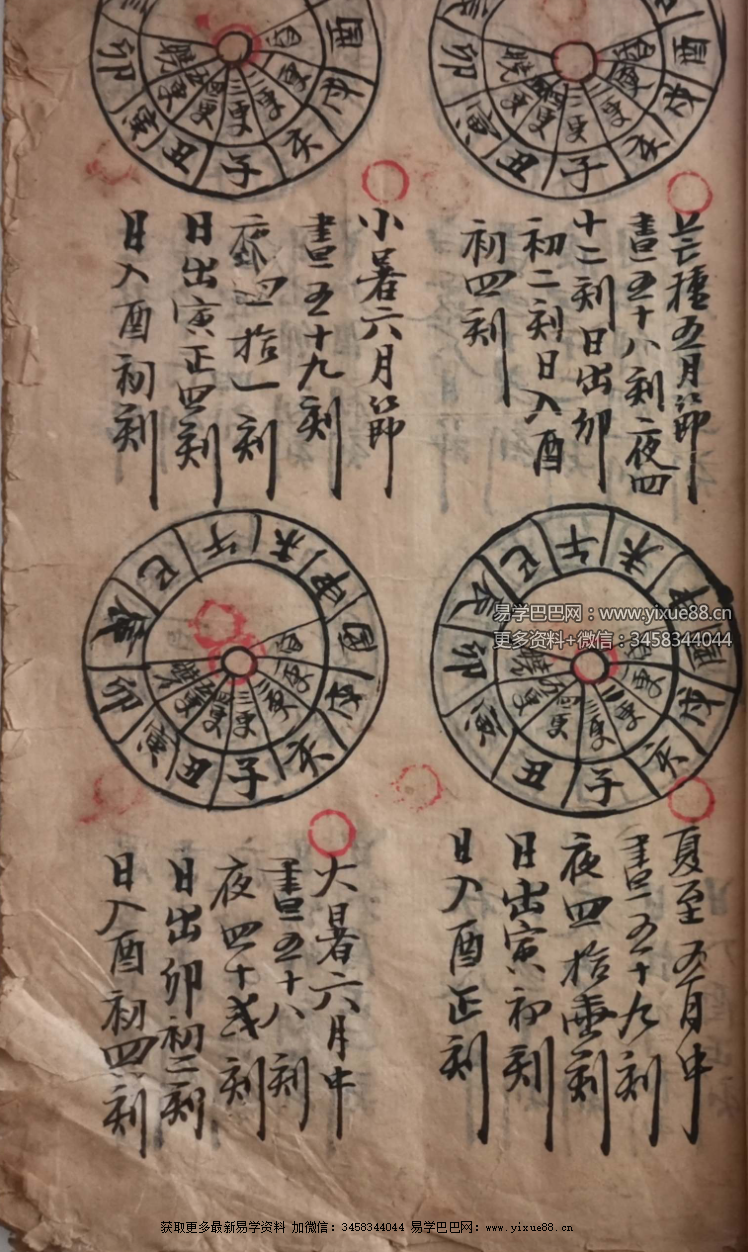 芒種五月節
晝五十八刻夜四
十二刻日出卯
初二刻日入酉
初四刻
小暑六月節
晝五十九刻
夜四拾一刻
日出寅正四刻
日入酉初刻
夏至五月中
晝五十九刻
夜四拾壹刻
日出寅初刻
日入酉正刻
大暑六月中
晝五十八刻
夜四十弍刻
日出卯初二刻
日入酉初四刻
酉 戌 亥 子 丑 寅 卯
二更 三更
酉 戌 亥 子 丑 寅 卯
二更 三更
子 丑 寅 卯 辰 巳 午 未 申 酉 戌 亥
二更 三更 四更
子 丑 寅 卯 辰 巳 午 未 申 酉 戌 亥
二更 三更
易学巴巴网：www.yixue88.cn
更多资料+微信：3458344044
获取更多最新易学资料 加微信：3458344044 易学巴巴网：www.yixue88.cn